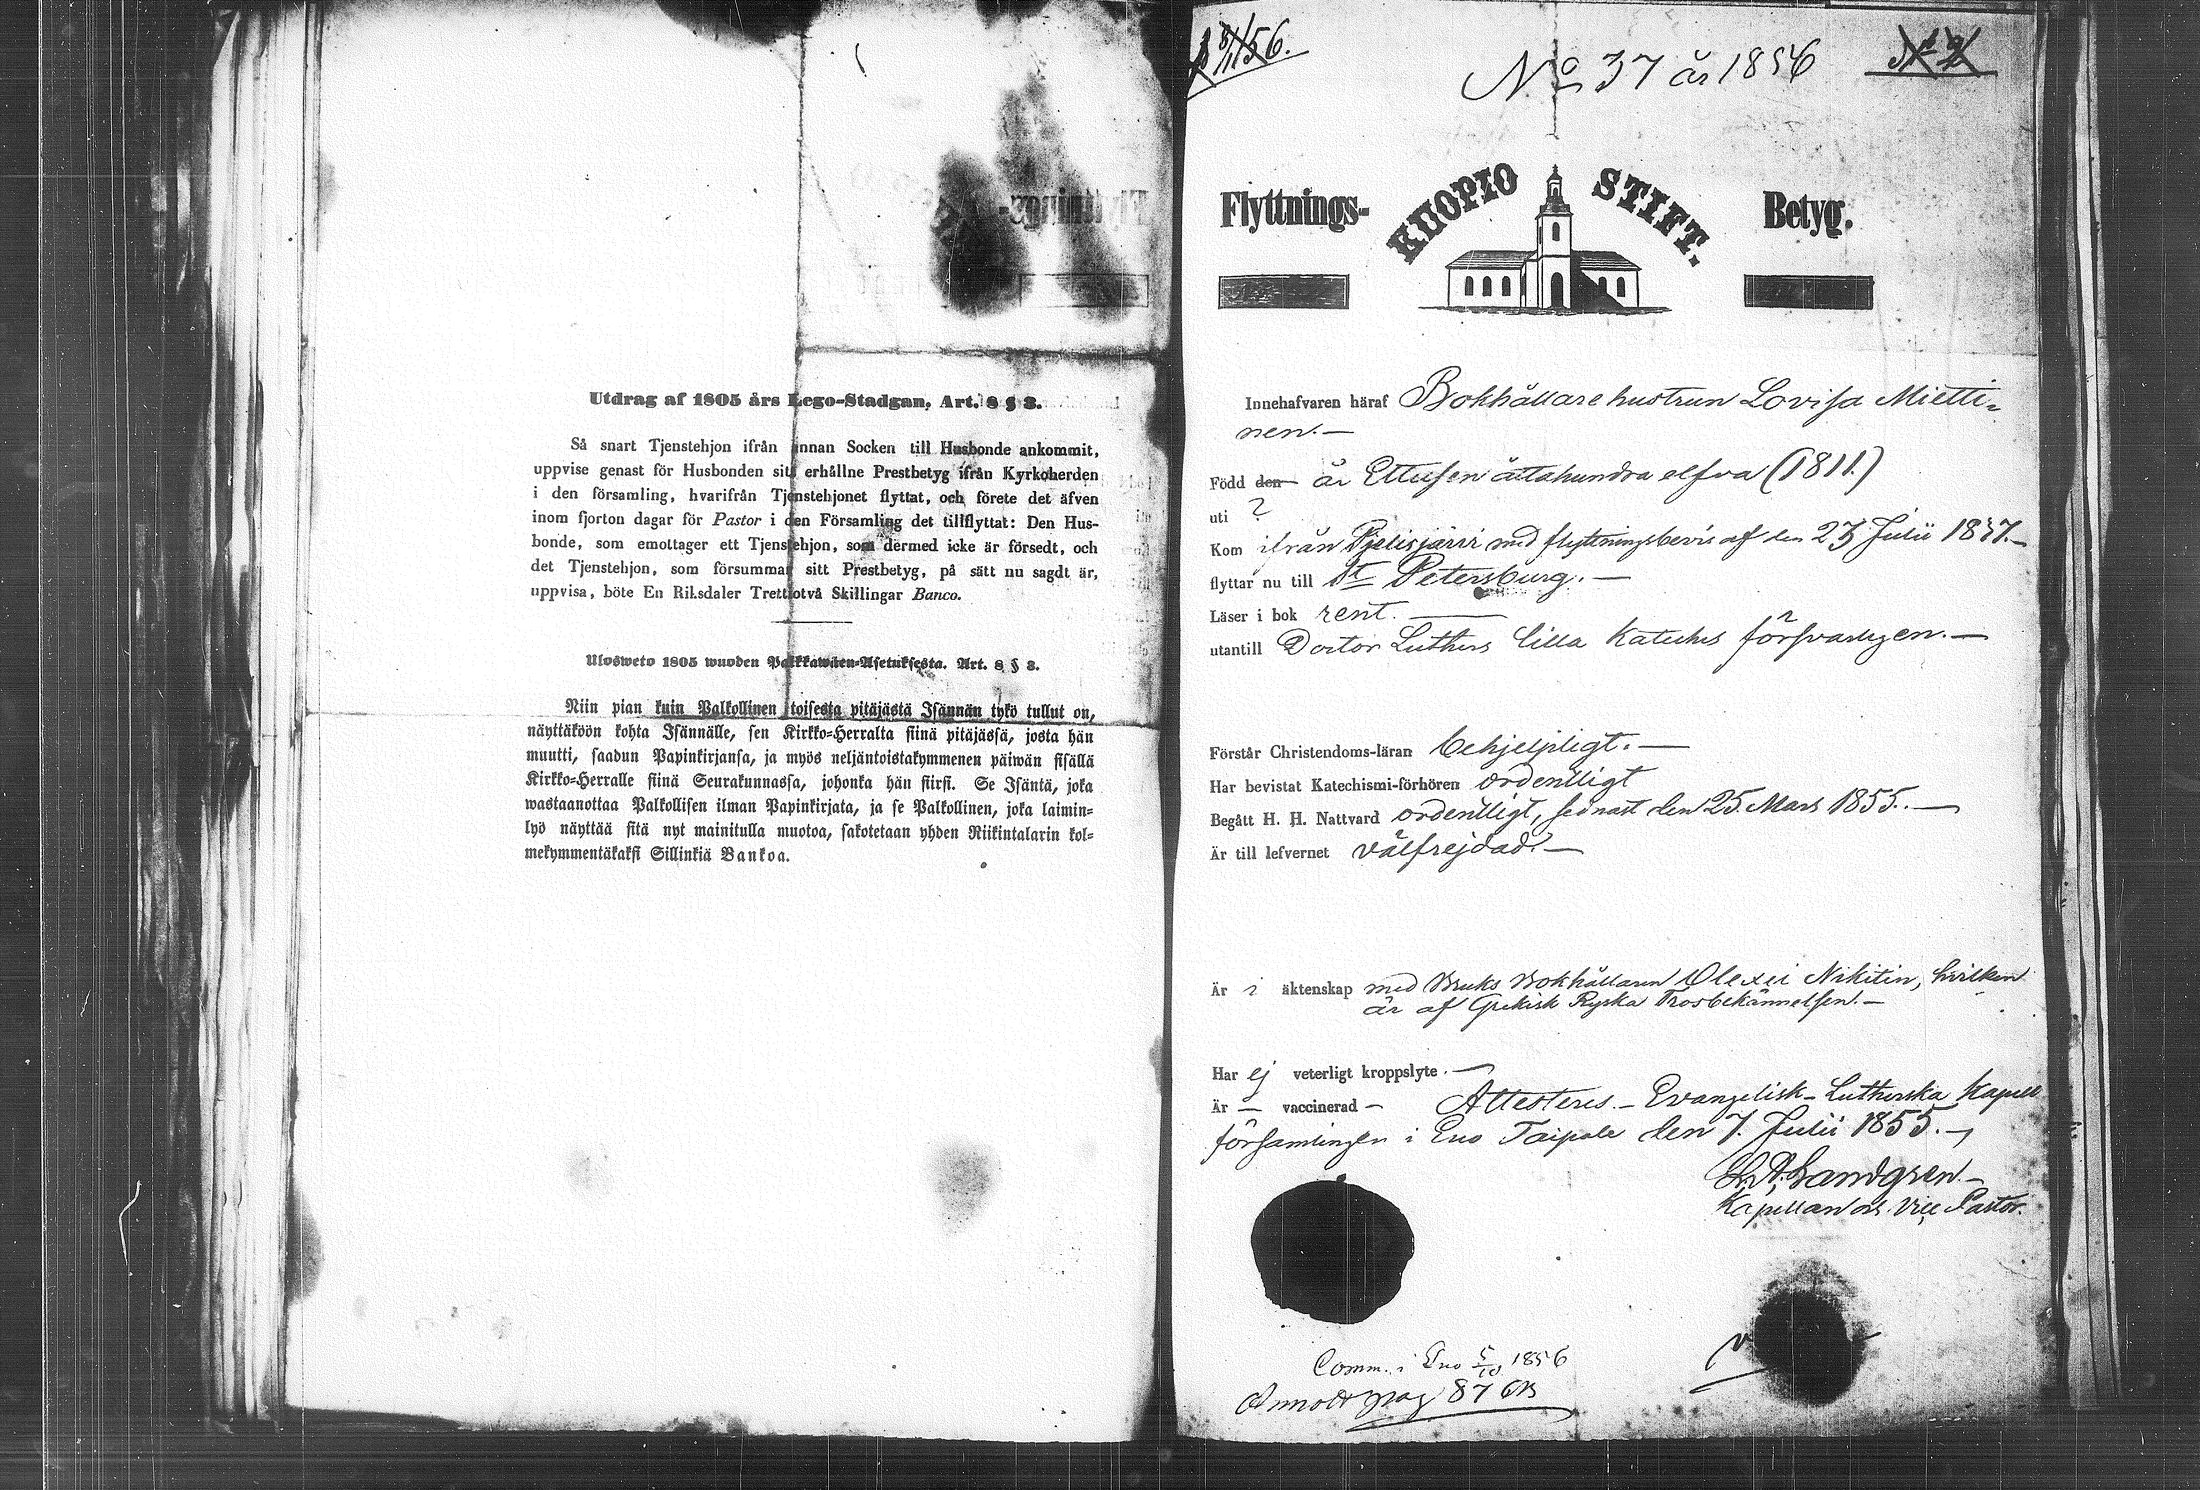 Utdrag af 1805 års Lego-Stadgan, Art. 8 § 3.
Så snart Tjenstehjon ifrån annan Socken till Husbonde ankommit,
uppvise genast för Husbonden sitt erhållne Prestbetyg ifrån Kyrkoherden
i den församling, hvarifrån Tjenstehjonet flyttat, och förete det äfven
inom fjorton dagar för Pastor i den Församling det tillflyttat: Den Hus-
bonde, som emottager ett Tjenstehjon, som dermed icke är försedt, och
det Tjenstehjon, som försummar sitt Prestbetyg, på sätt nu sagdt är,
uppvisa, böte En Riksdaler Trettiotvå Skillingar Banco.
Ulosweto 1805 wuoden Palkkawäen-Asetuksesta. Art. 8 § 3.
Niin pian kuin Palkollinen toisesta pitäjästä Isännän tykö tullut on,
näyttäköön kohta Isännälle, sen Kirkko-Herralta siinä pitäjässä, josta hän
muutti, saadun Papinkirjansa, ja myös neljäntoistakymmenen päiwän sisällä
Kirkko-Herralle siinä Seurakunnassa, johonka hän siirsi. Se Isäntä, joka
wastaanottaa Palkollisen ilman Papinkirjata, ja se Palkollinen, joka laimin-
lyö näyttää sitä nyt mainitulla muotoa, sakotetaan yhden Riikintalarin kol-
mekymmentäkaksi Sillinkiä Bankoa.
No 37 år 1856
Flyttnings- KUOPIO STIFT. Betyg.
Innehafvaren häraf Bokhållare hustrun Lovisa Mietti-
nen.
Född den år Ettusen åttahundra elfva (1811.)
uti ?
Kom ifrån Pielisjärvi med flyttningsbevis af den 23 Julii 1837.
flyttar nu till St Petersburg.
Läser i bok rent.
utantill Doctor Luthers lilla Kateches försvarligen.
Förstår Christendoms-läran behjelpligt.
Har bevistat Katechismi-förhören ordentligt
Begått H. H. Nattvard ordentligt, sednast den 25 Mars 1855.
Är till lefvernet välfrejdad.
Är i äktenskap med Bruks Bokhållaren Olexei Nikitin, hvilken
är af Grekisk Ryska Trosbekännelsen.
Har ej veterligt kroppslyte.
Är — vaccinerad — Attesteres. Evangelisk-Lutherska Kapell
församlingen i Eno Taipale den 7. Julii 1855.
Sandgren.
Kapellan och Vice Pastor.
Comm. i Eno 5/10 1856
Annott pag 87